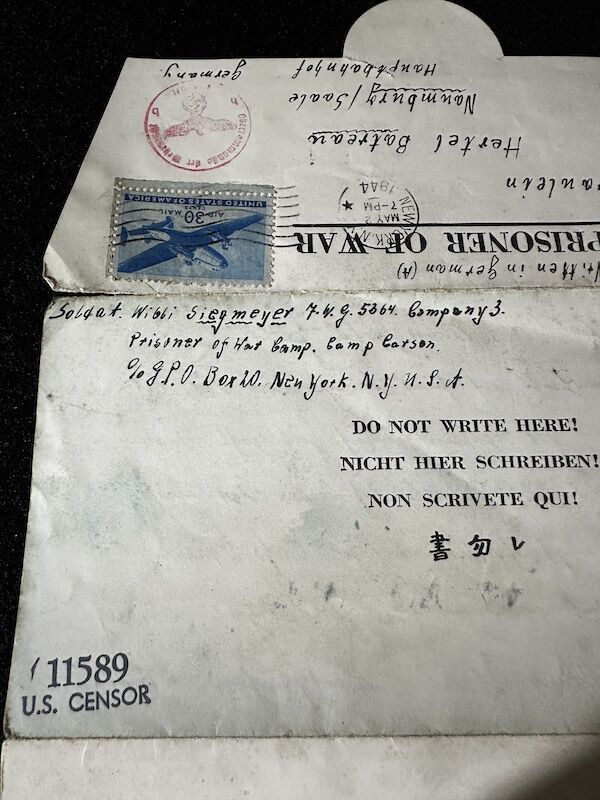 ritten in German (A)
PRISONER OF WAR
NEW YORK, N.Y.
MAY 2
7-PM
1944
30
CENTS
AIR MAIL
UNITED STATES OF AMERICA
raulein
Hertel Batreau
Naumburg / Saale
Hauptbahnhof
Germany
Oberkommando der Wehrmacht
b b
Soldat. Willi Siegmeyer 7.W.G. 5364. Company 3.
Prisoner of War Camp. Camp Carson.
c/o G.P.O. Box 20. New York. N.Y. U.S.A.
DO NOT WRITE HERE!
NICHT HIER SCHREIBEN!
NON SCRIVETE QUI!
書勿レ
11589
U.S. CENSOR